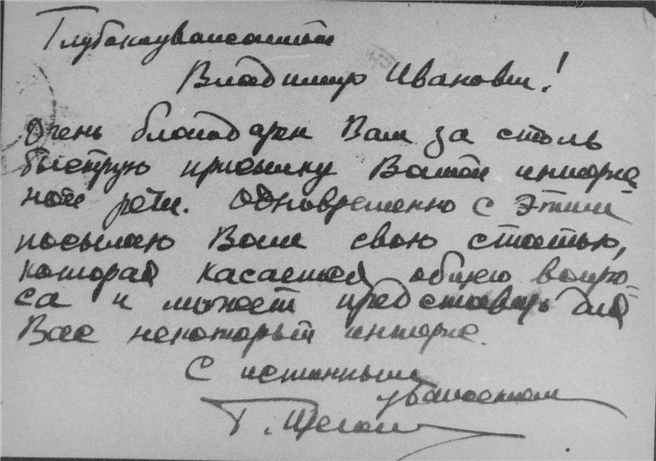 Глубокоуважаемый
Владимир Иванович!
Очень благодарен Вам за столь
быструю присылку Вашей интерес
ной речи. Одновременно с этим
посылаю Вам свою статью,
которая касается общего вопро-
са и может представить для
Вас некоторый интерес.
С истинным
уважением
Г.